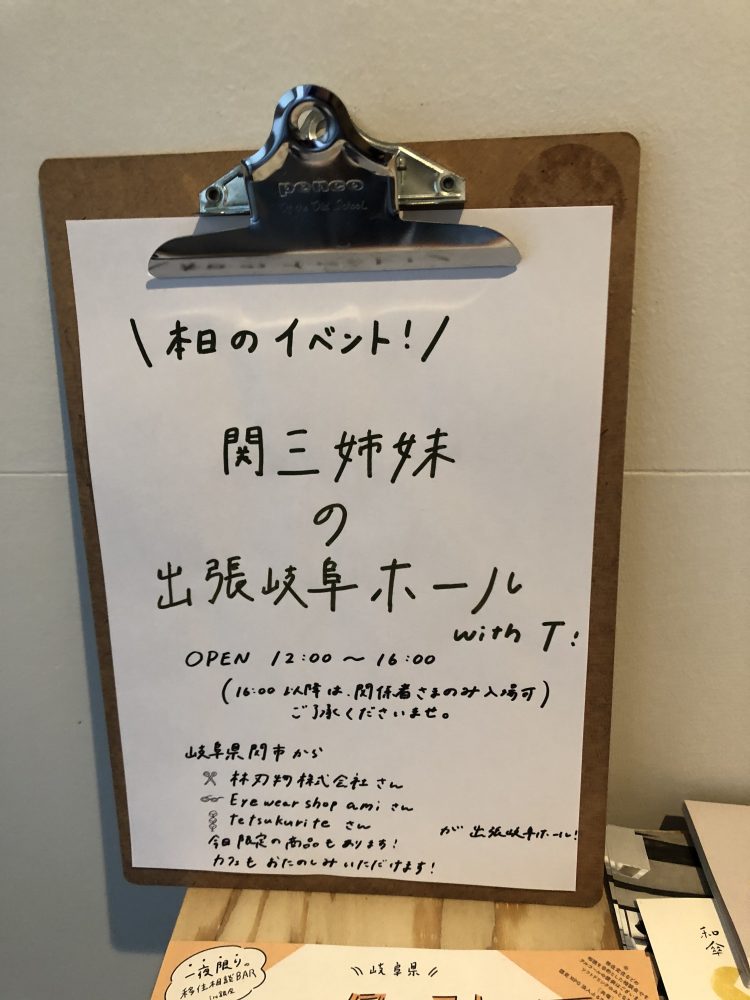 penco
\ 本日のイベント! /
関三姉妹
の
出張岐阜ホール
with T!
OPEN 12:00 〜 16:00
(16:00 以降は、関係者さまのみ入場可)
ご了承くださいませ。
岐阜県関市から
林刃物株式会社さん
Eyewear shop amiさん
tetsukuriteさん
が 出張岐阜ホール!
今日限定の商品もあります!
カフェもおたのしみいただけます!
和傘
一夜限り。
移住相談BAR
in銀座
\\ 岐阜県 //